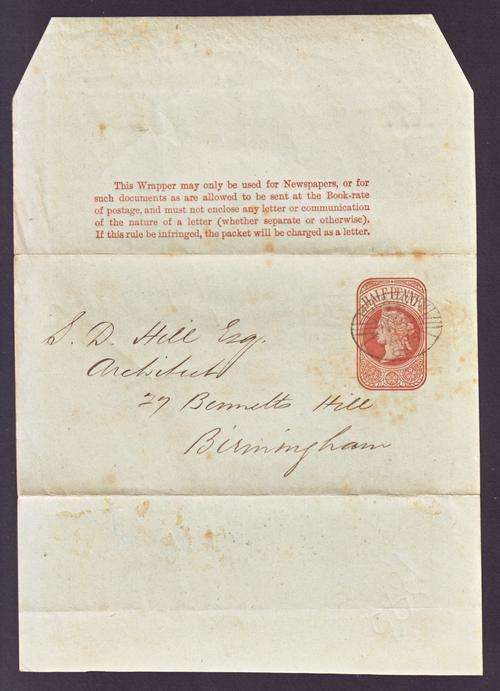 This Wrapper may only be used for Newspapers, or for
such documents as are allowed to be sent at the Book-rate
of postage, and must not enclose any letter or communication
of the nature of a letter (whether separate or otherwise).
If this rule be infringed, the packet will be charged as a letter.
HALFPENNY
S. D. Hill Esq.
Architect
27 Bennetts Hill
Birmingham